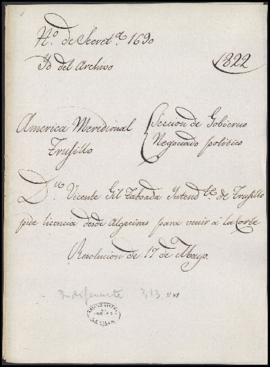 Nº de Secretª 1690
Id del Archivo
1822
America Meridional
Trujillo
Seccion de Gobierno
Negociado politico
Dⁿ Vicente Gil Taboada Intendᵗᵉ de Trujillo
pide licencia desde Algeciras para venir à la Corte
Resolucion de 17 de Mayo.
Indiferente 313